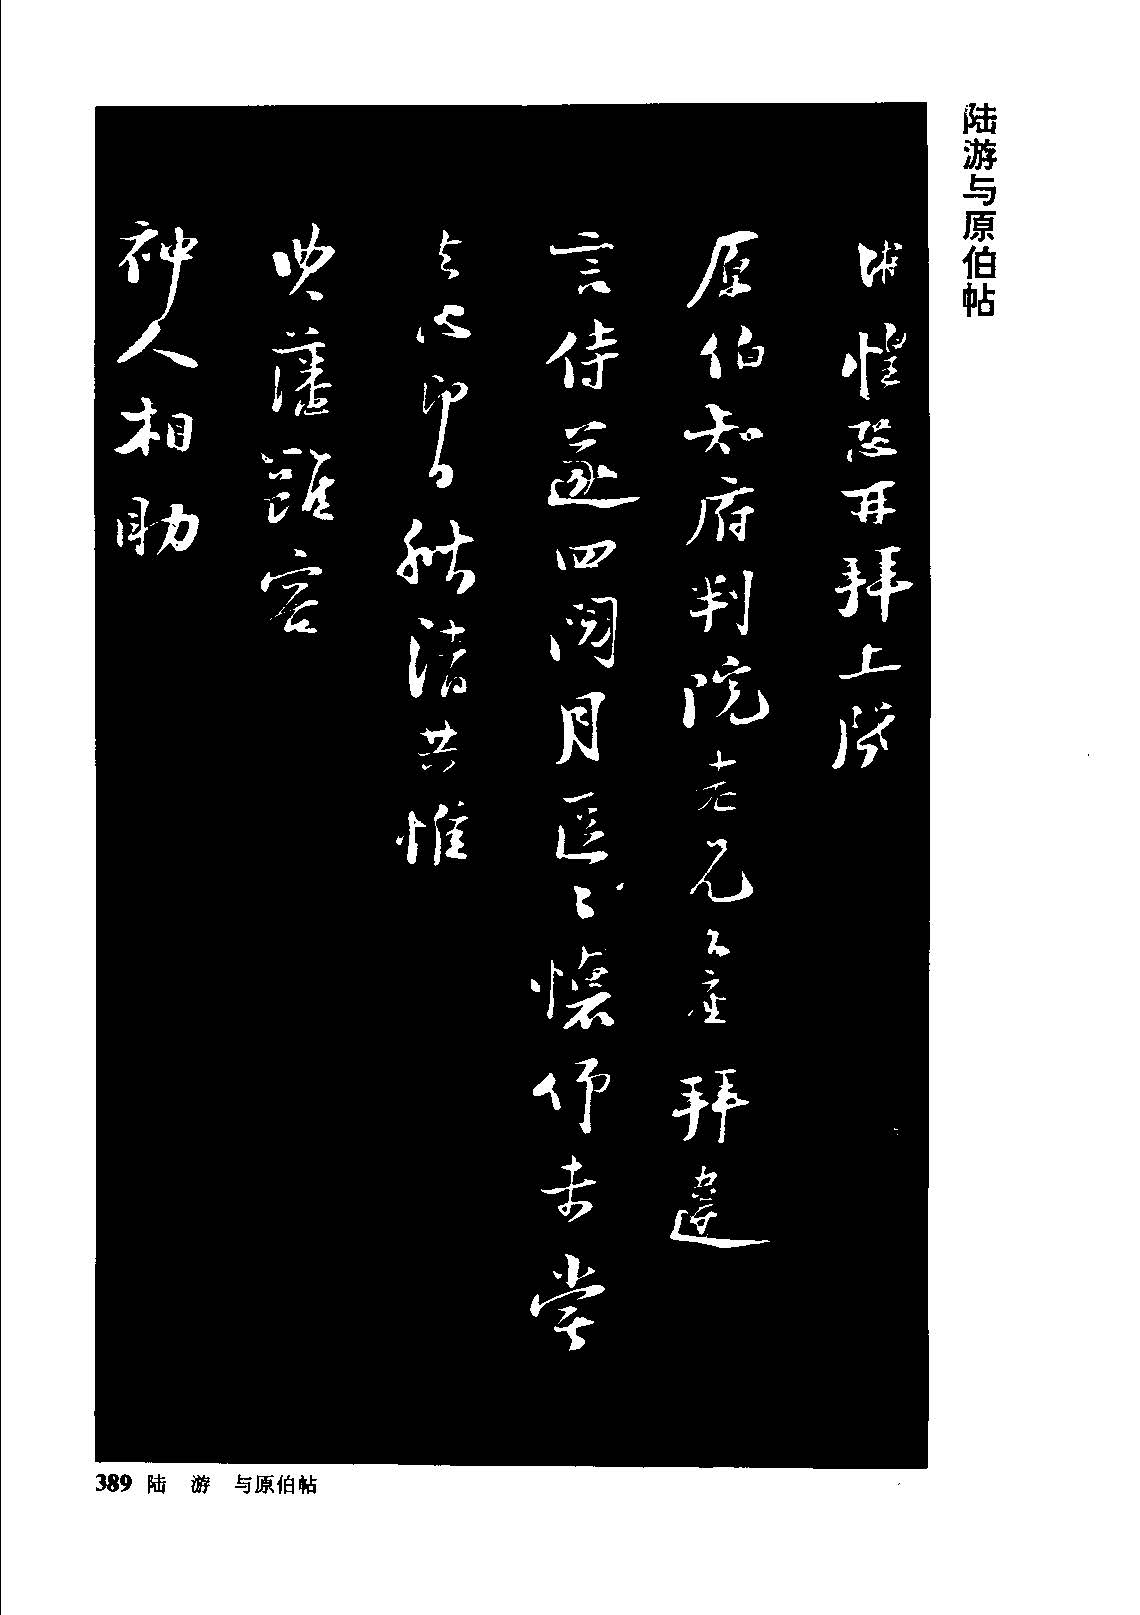 陆游与原伯帖
游惶恐再拜上啓
原伯知府判院老兄台座拜違
言侍遂四閲月區〻懷仰未嘗
去心即日秋清共惟
典藩雍容
神人相助
389 陆 游 与原伯帖